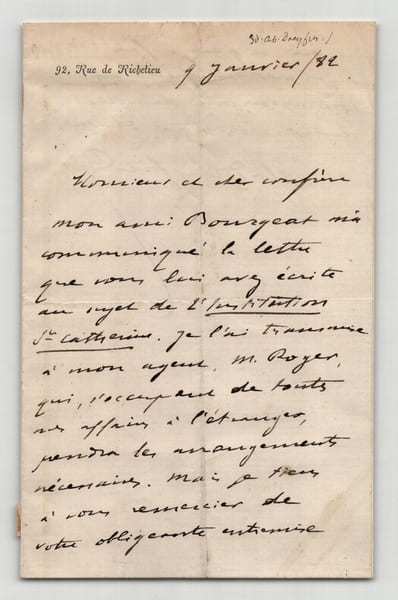 92, Rue de Richelieu
9 Janvier/82
Monsieur et cher confrère
mon ami Bourgeat m'a
communiqué la lettre
que vous lui avez écrite
au sujet de l'Institution
Ste Catherine. Je l'ai transmise
à mon agent, M. Roger,
qui, s'occupant de toutes
mes affaires à l'étranger,
prendra les arrangements
nécessaires. Mais je tiens
à vous remercier de
votre obligeante entremise